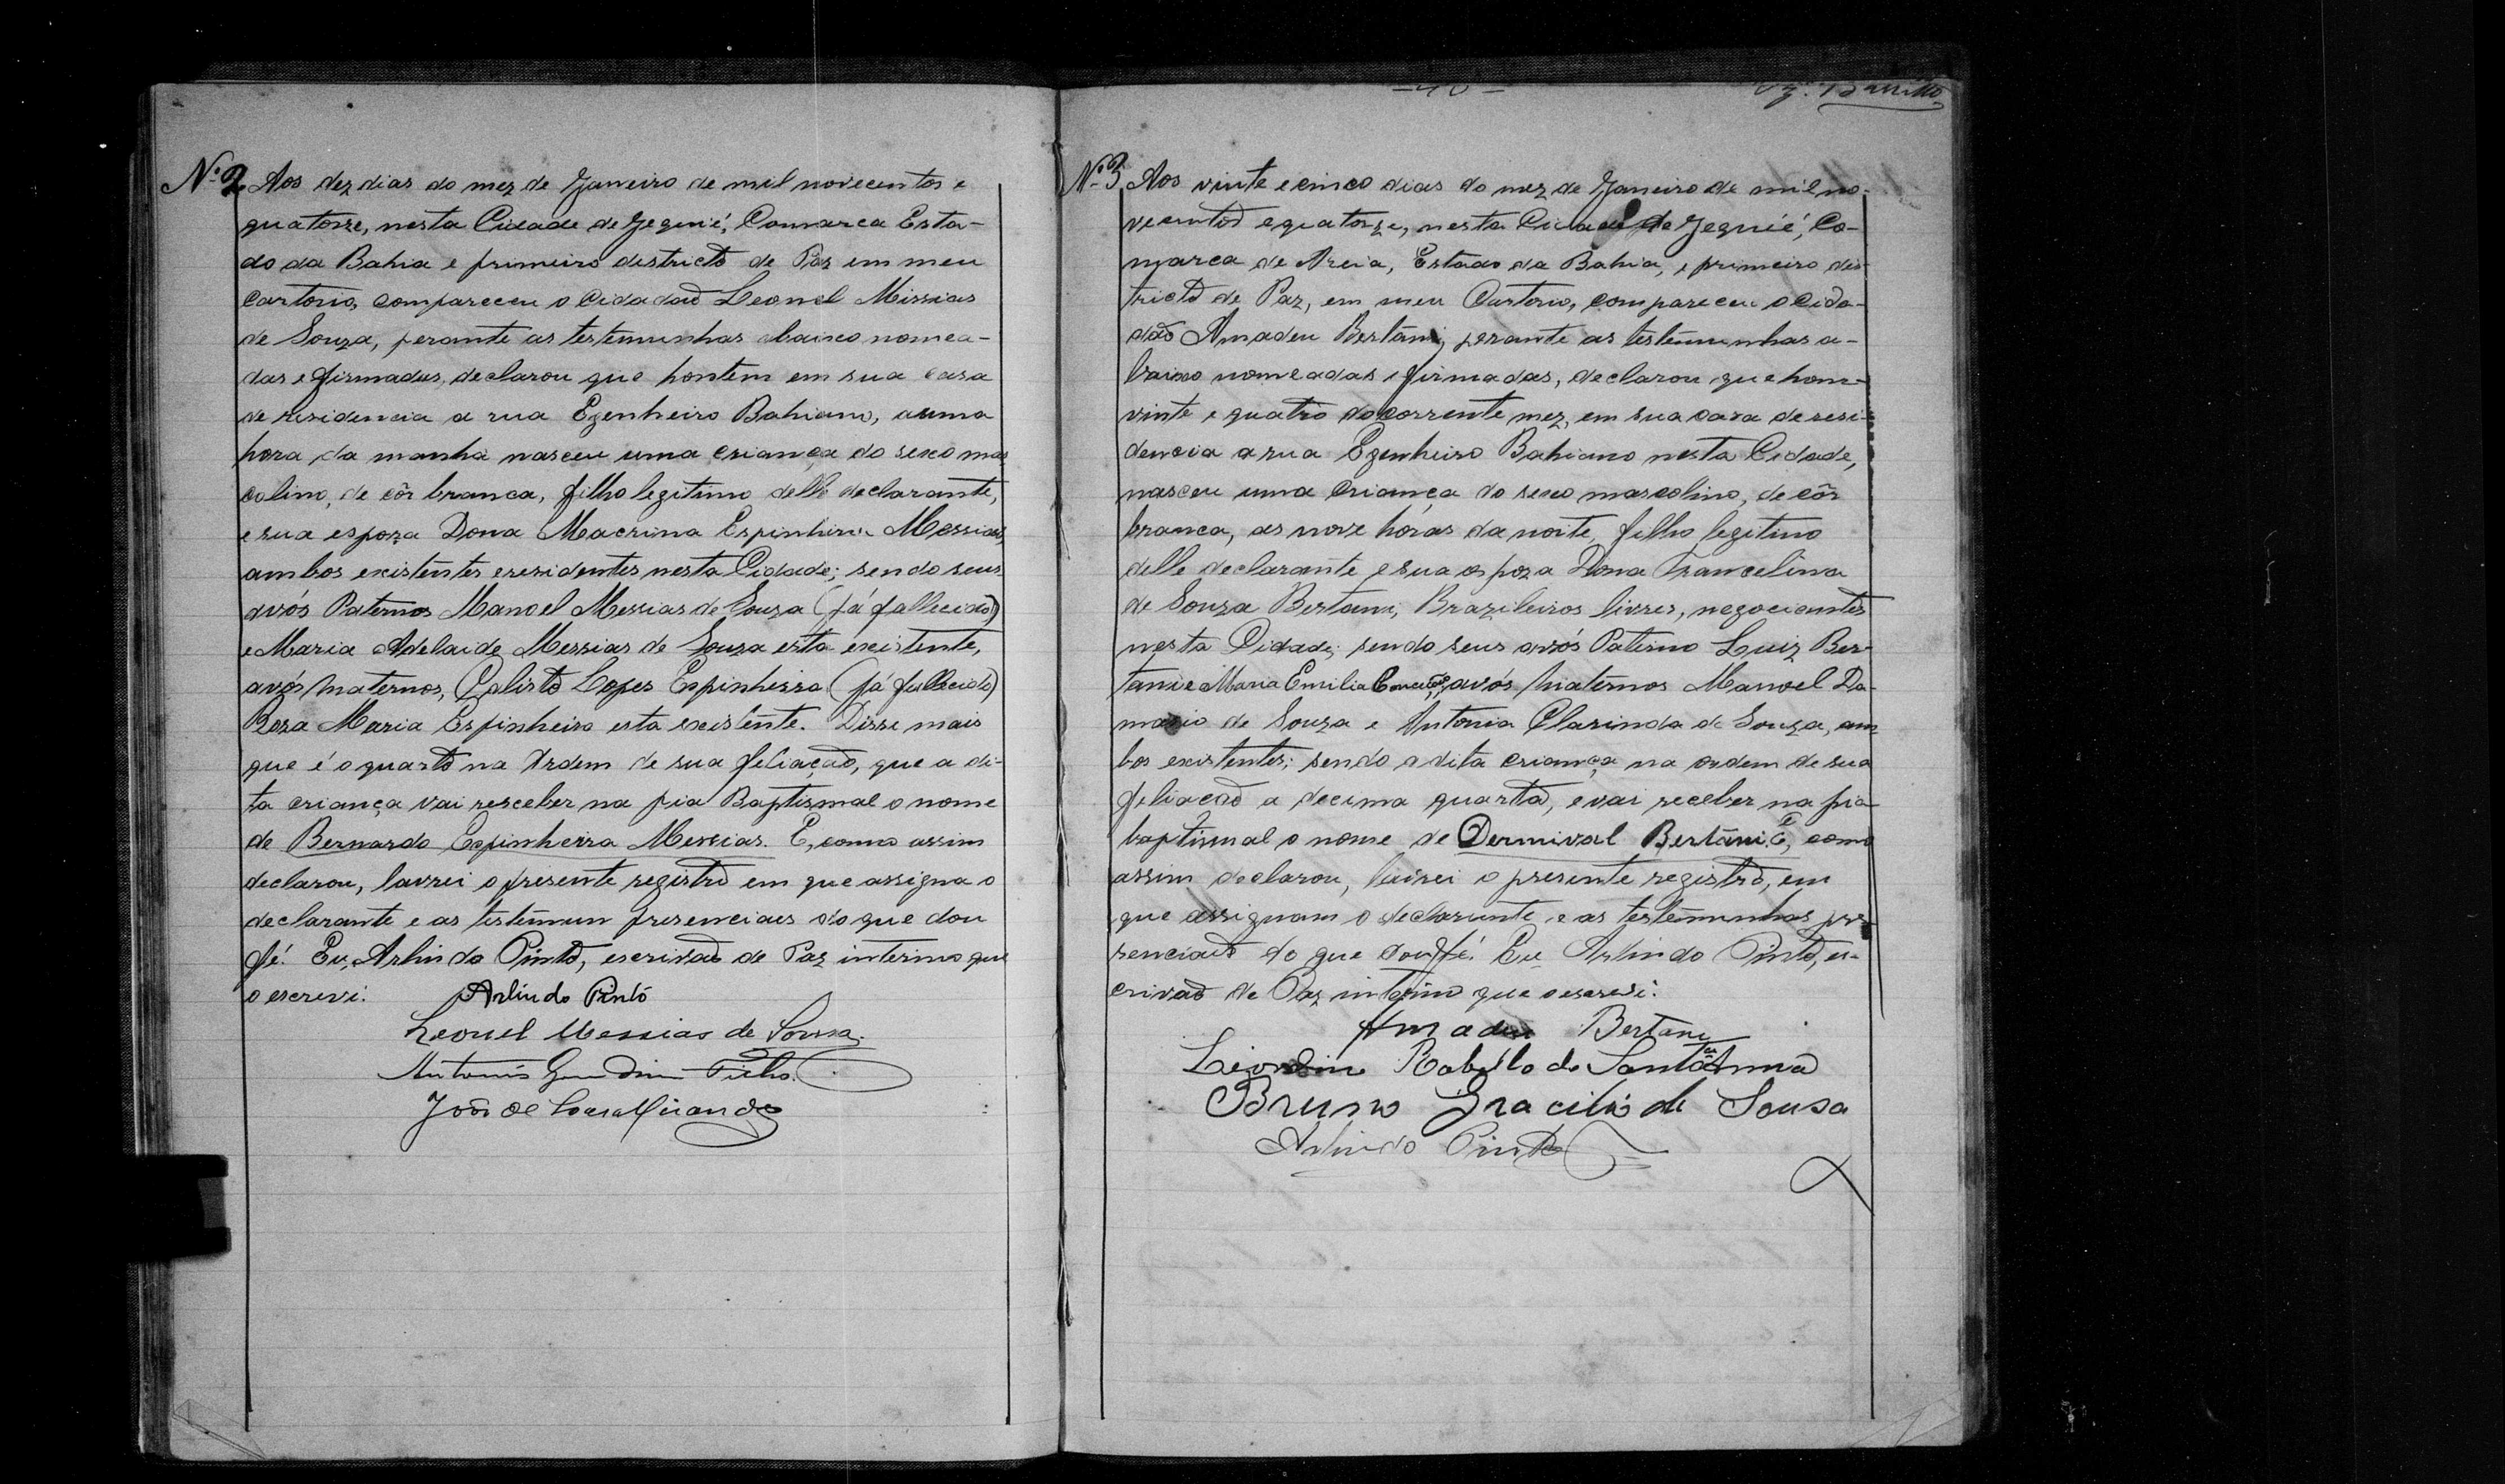 Nº 2 Aos dez dias do mez de Janeiro de mil novecentos e
quatorze, nesta Cidade de Jequié, Comarca Esta-
do da Bahia e primeiro districto de Paz em meu
Cartorio, compareceu o Cidadão Leonel Missias
de Souza, perante as testemunhas abaixo nomea-
das e firmadas, declarou que hontem em sua casa
de residencia a rua Egenheiro Bahiano, a uma
hora da manhã nasceu uma criança do sexo mas
colino, de côr branca, filho legitimo delle declarante,
e sua espoza Dona Macrina Espinheira Messias,
ambos existentes e residentes nesta Cidade; sendo seus
avós Paternos Manoel Messias de Souza (já fallecido)
e Maria Adelaide Messias de Souza esta existente,
avós maternos, Calisto Lopes Espinheira (já fallecido)
Roza Maria Espinheira esta existente. Disse mais
que é o quarto na Ordem de sua feliação, que a di-
ta criança vai resceber na pia Baptismal o nome
de Bernardo Espinheira Messias. E, como assim
declarou, lavrei o presente registro em que assigna o
declarante e as testemun presenciaes do que dou
fé. Eu, Arlindo Pinto, escrivão de Paz interino que
o escrevi. Arlindo Pinto
Leonel Messias de Souza.
Antonio Filho.
João de Miranda
Nº 3 Aos vinte e cinco dias do mez de Janeiro de mil no-
vecentos e quatorze, nesta Cidade de Jequié, Co-
marca de Areia, Estado da Bahia, e primeiro dis-
tricto de Paz, em meu Cartorio, compareceu o Cida-
dão Amadeu Bertani, perante as testemunhas a-
baixo nomeadas e firmadas, declarou que hom-
vinte e quatro do corrente mez, em sua casa de resi-
dencia a rua Egenheiro Bahiano nesta Cidade,
nasceu uma criança do sexo mascolino, de côr
branca, as nove horas da noite, filho legitimo
delle declarante e sua espoza Dona Francelina
de Souza Bertani, Brazileiros livres, negociantes
nesta Cidade; sendo seus avós Paterno Luiz Ber-
tani e Maria Emilia avós maternos Manoel Da-
mazio de Souza e Antonia Clarinda de Souza, am
bos existentes; sendo a dita criança na ordem de sua
feliação a decima quarta, e vai receber na pia
baptismal o nome de Dermival Bertâni. E, como
assim declarou, lavrei o presente registro, em
que assignam o declarante e as testemunhas pre
senciaes do que dou fé. Eu Arlindo Pinto, es-
crivão de Paz interino que o escrevi.
Amadeu Bertani
Rabello de Sant'Anna
Bruno Gracilió de Sousa
Arlindo Pinto